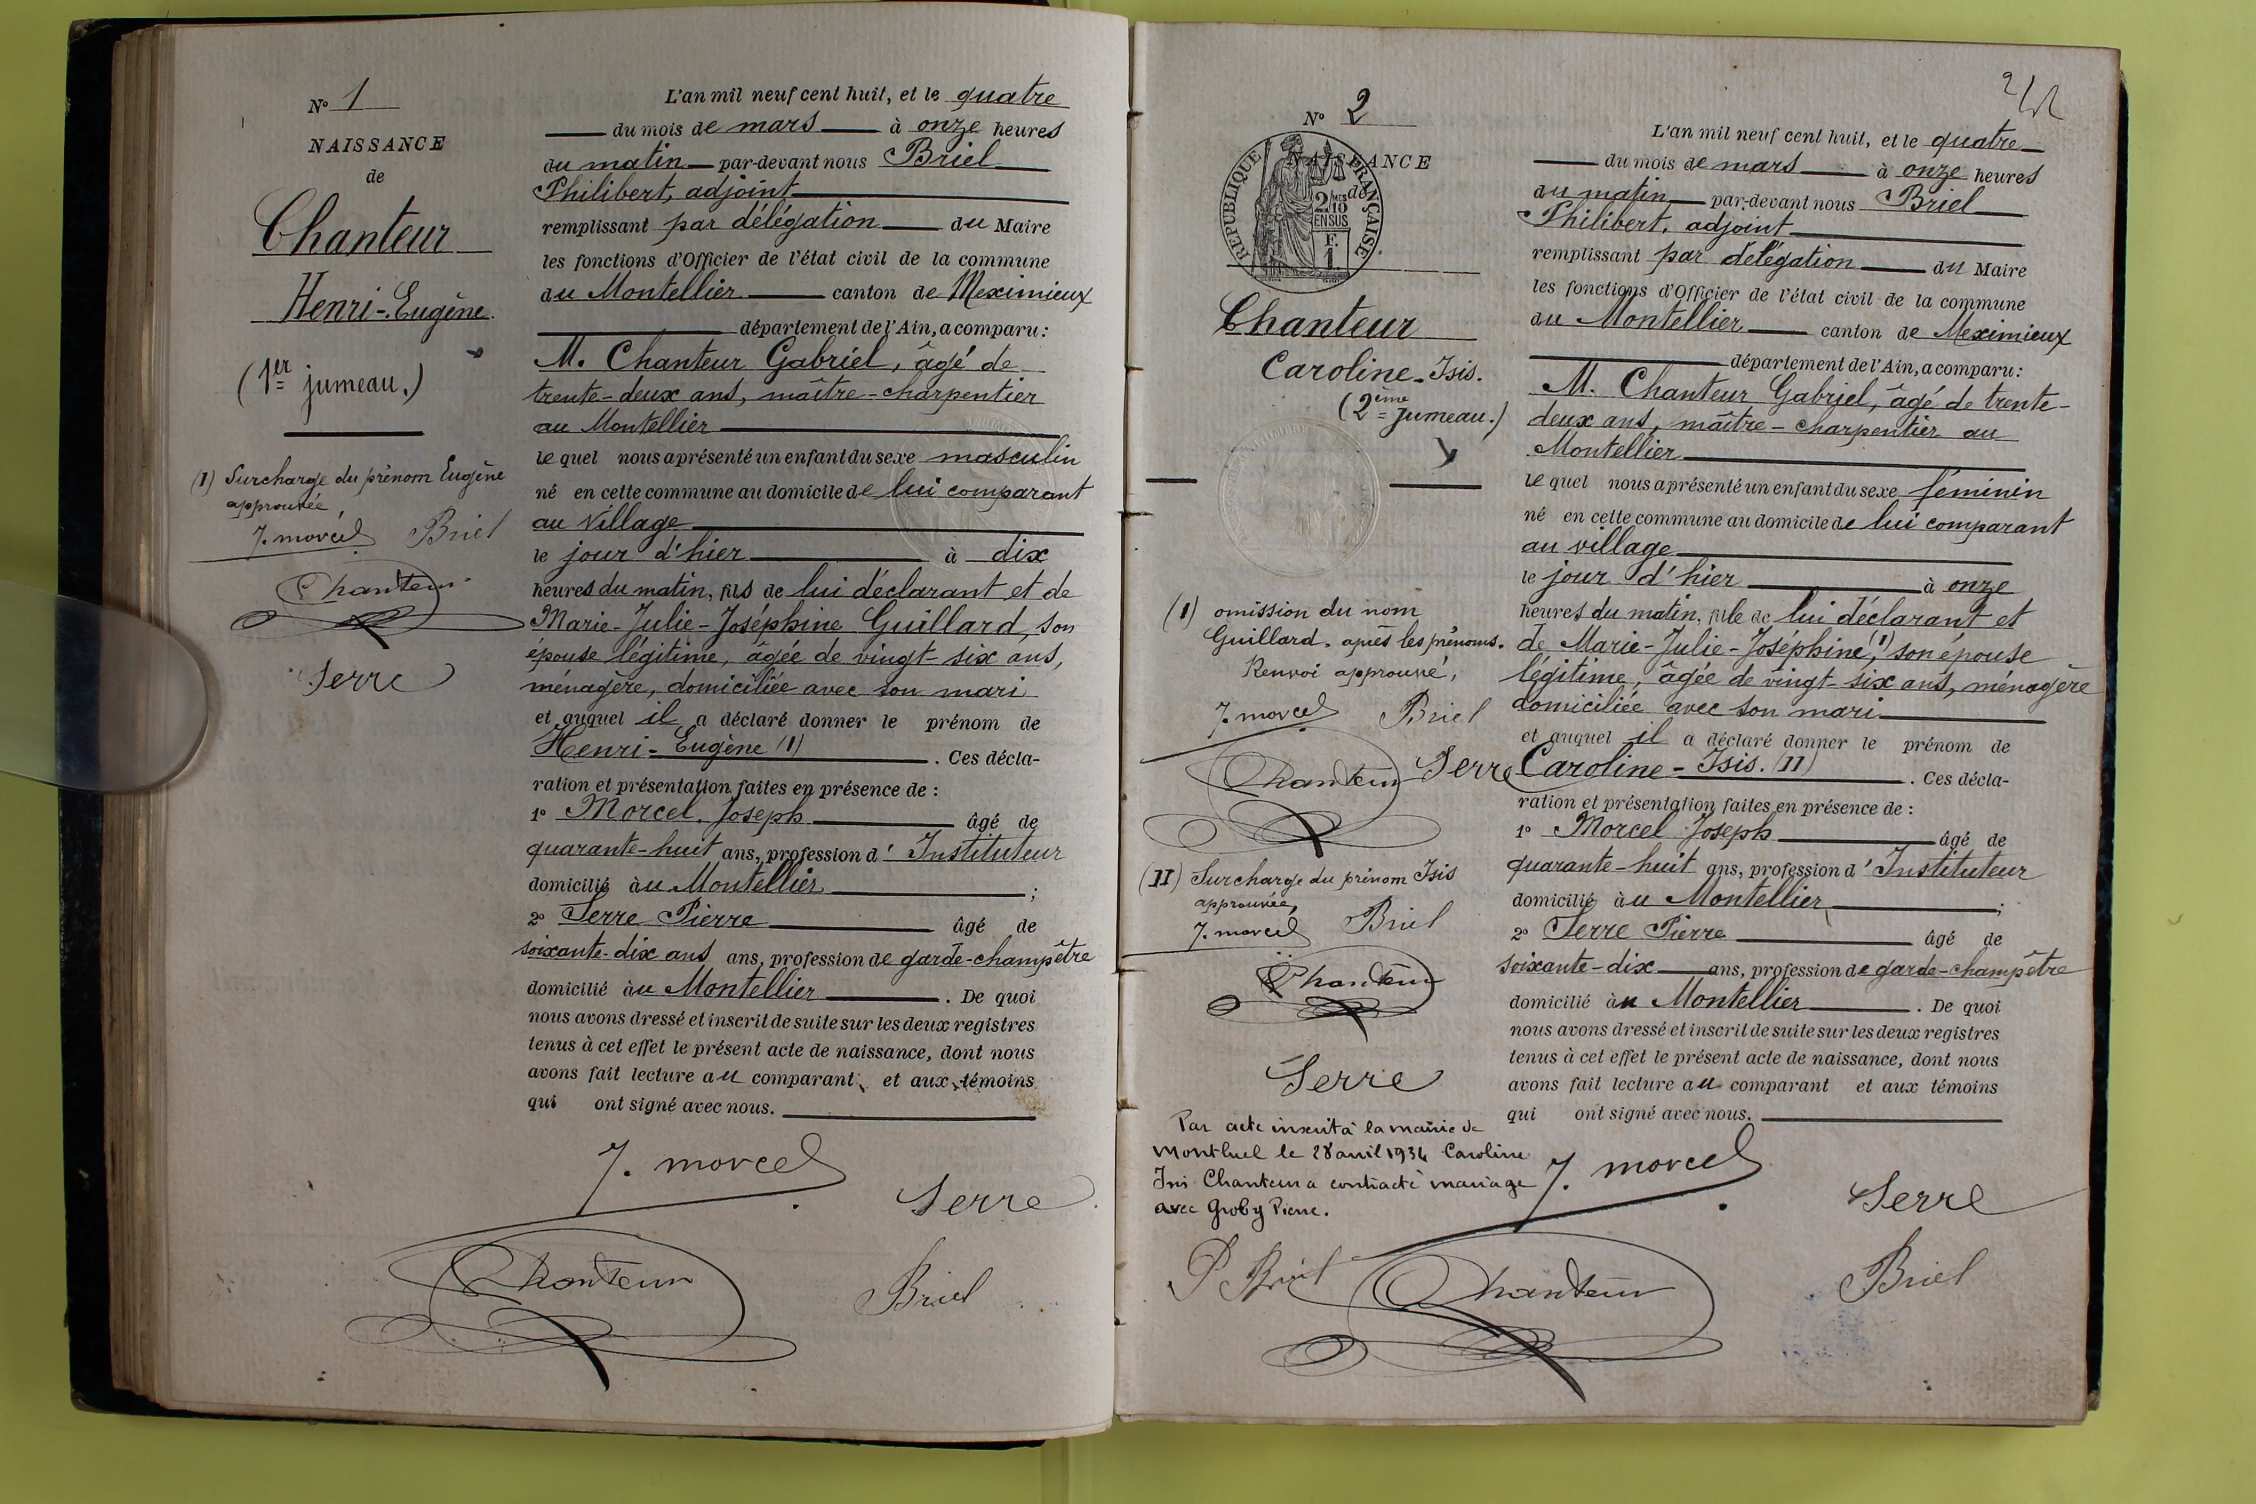 N° 1
NAISSANCE
de
Chanteur
Henri-Eugène.
(1er jumeau.)
(1) Surcharge du prénom Eugène
approuvée,
J. morcel Briel
Chanteur
Serre
L'an mil neuf cent huit, et le quatre
du mois de mars à onze heures
du matin par-devant nous Briel
Philibert, adjoint
remplissant par délégation du Maire
les fonctions d'Officier de l'état civil de la commune
du Montellier canton de Meximieux
département de l'Ain, a comparu :
M. Chanteur Gabriel, âgé de
trente-deux ans, maître-charpentier
au Montellier
lequel nous a présenté un enfant du sexe masculin
né en cette commune au domicile de lui comparant
au village
le jour d'hier à dix
heures du matin, fils de lui déclarant et de
Marie-Julie-Joséphine Guillard, son
épouse légitime, âgée de vingt-six ans,
ménagère, domiciliée avec son mari
et auquel il a déclaré donner le prénom de
Henri-Eugène (1) . Ces décla-
ration et présentation faites en présence de :
1° Morcel Joseph âgé de
quarante-huit ans, profession d' Instituteur
domicilié au Montellier ;
2° Serre Pierre âgé de
soixante-dix ans ans, profession de garde-champêtre
domicilié au Montellier . De quoi
nous avons dressé et inscrit de suite sur les deux registres
tenus à cet effet le présent acte de naissance, dont nous
avons fait lecture au comparant et aux témoins
qui ont signé avec nous.
J. morcel
Serre
Chanteur
Briel
N° 2
NAISSANCE
de
RÉPUBLIQUE FRANÇAISE
2/10
EN SUS
F.
1
Chanteur
Caroline-Isis.
(2ème jumeau.)
(I) omission du nom
Guillard, après les prénoms.
Renvoi approuvé,
J. morcel Briel
Chanteur Serre
(II) Surcharge du prénom Isis
approuvée,
J. morcel Briel
Chanteur
Serre
Par acte inscrit à la mairie de
Montluel le 28 avril 1934 Caroline
Isis Chanteur a contracté mariage
avec Groby Pierre.
P Briel
L'an mil neuf cent huit, et le quatre
du mois de mars à onze heures
du matin par-devant nous Briel
Philibert, adjoint
remplissant par délégation du Maire
les fonctions d'Officier de l'état civil de la commune
du Montellier canton de Meximieux
département de l'Ain, a comparu :
M. Chanteur Gabriel, âgé de trente-
deux ans, maître-charpentier au
Montellier
lequel nous a présenté un enfant du sexe féminin
né en cette commune au domicile de lui comparant
au village
le jour d'hier à onze
heures du matin, fille de lui déclarant et
de Marie-Julie-Joséphine (I), son épouse
légitime, âgée de vingt-six ans, ménagère
domiciliée avec son mari
et auquel il a déclaré donner le prénom de
Caroline-Isis. (II) . Ces décla-
ration et présentation faites en présence de :
1° Morcel Joseph âgé de
quarante-huit ans, profession d' Instituteur
domicilié au Montellier ;
2° Serre Pierre âgé de
soixante-dix ans, profession de garde-champêtre
domicilié au Montellier . De quoi
nous avons dressé et inscrit de suite sur les deux registres
tenus à cet effet le présent acte de naissance, dont nous
avons fait lecture au comparant et aux témoins
qui ont signé avec nous.
J. morcel
Serre
Chanteur
Briel